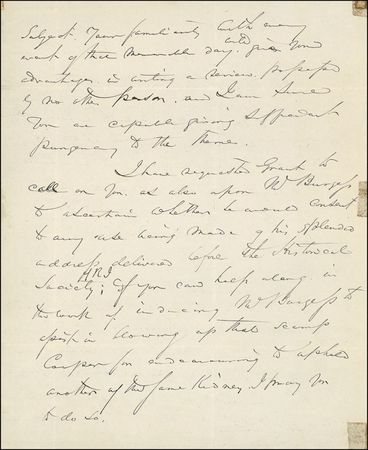 Subject. Your familiarity with every
event of that memorable day. gives you
advantages in writing a review. possessed
by no other person. and I am sure
you are capable giving sufficient
pungency to the theme.
I have requested Grant to
call on you. as also upon Mr Burgess
to ascertain whether he would consent
to any use being made of his splendid
address delivered before the Historical
Society; if you can help along in
the work of inducing Mr Burgess to
assist in showing up that scamp
Casper for endeavouring to uphold
another of the same Kidney. I pray you
to do so.